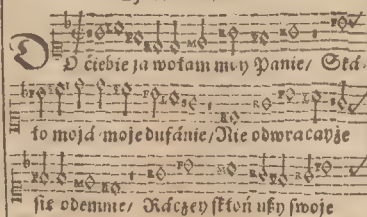 DO ćiebie ja wołam moy Panie/ Ská-
ło mojá moje dufánie/ Nie odwracayże
się odemnie/ Ráczey skłoń uszy swoje